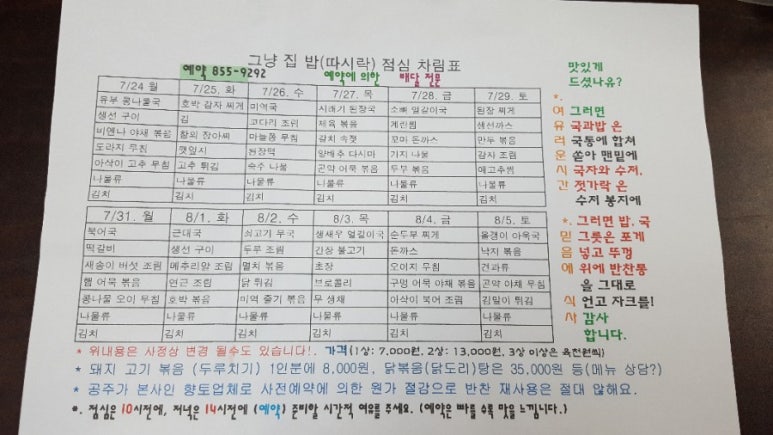 그냥 집 밥(따시락) 점심 차림표
예약 855-9292 예약에 의한 배달 전문
7/24 월 7/25. 화 7/26. 수 7/27. 목 7/28. 금 7/29. 토
유부 콩나물국 호박 감자 찌개 미역국 시래기 된장국 소뼈 얼갈이국 된장 찌개
생선 구이 김 코다리 조림 제육 볶음 계란찜 생선까스
비엔나 야채 볶음 참외 장아찌 마늘쫑 무침 갈치 속젓 꼬마 돈까스 만두 볶음
도라지 무침 깻잎지 쌈장떡 양배추 다시마 가지 나물 감자 조림
아삭이 고추 무침 고추 튀김 숙주 나물 곤약 어묵 볶음 두부 볶음 메추리쌈
나물류 나물류 나물류 나물류 나물류 나물류
김치 김치 김치 김치 김치 김치
7/31. 월 8/1. 화 8/2. 수 8/3. 목 8/4. 금 8/5. 토
북어국 근대국 쇠고기 무국 생새우 얼갈이국 순두부 찌개 올갱이 아욱국
떡갈비 생선 구이 두부 조림 간장 불고기 돈까스 낙지 볶음
새송이 버섯 조림 메추리알 조림 멸치 볶음 초장 오이지 무침 견과류
햄 어묵 볶음 연근 조림 닭 튀김 브로콜리 구멍 어묵 야채 볶음 곤약 야채 무침
콩나물 오이 무침 호박 볶음 미역 줄기 볶음 무 생채 아삭이 북어 조림 김말이 튀김
나물류 나물류 나물류 나물류 나물류 나물류
김치 김치 김치 김치 김치 김치
* 위내용은 사정상 변경 될수도 있습니다!. 가격(1상: 7,000원, 2상: 13,000원, 3상 이상은 육천원씩)
* 돼지 고기 볶음 (두루치기) 1인분에 8,000원, 닭볶음(닭도리)탕은 35,000원 등(메뉴 상담?)
* 공주가 본사인 향토업체로 사전예약에 의한 원가 절감으로 반찬 재사용은 절대 않해요.
*. 점심은 10시전에, 저녁은 14시전에 (예약) 준비할 시간적 여유를 주세요. (예약은 빠를 수록 맛을 느낍니다.)
맛있게
드셨나유?
*.
여유러운시간
믿음에
식사
그러면
국과밥 은
국통에 합쳐
쏟아 맨밑에
국자와 수저,
젓가락 은
수저 봉지에
*. 그러면 밥, 국
그릇은 포개
넣고 뚜껑
위에 반찬통
을 그대로
언고 자크를!
감사
합니다.